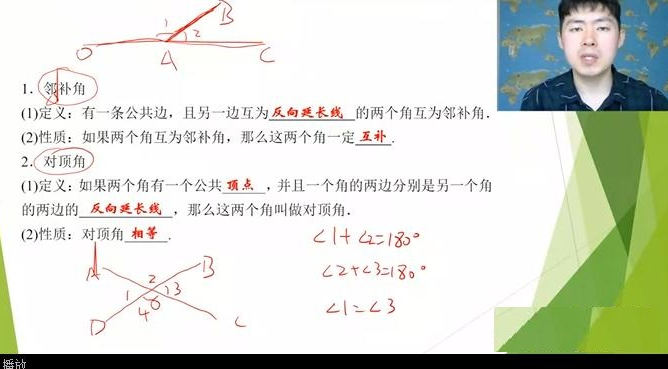 B
1 2
O A C
1. 邻补角
(1)定义：有一条公共边，且另一边互为反向延长线的两个角互为邻补角.
(2)性质：如果两个角互为邻补角，那么这两个角一定互补.
2. 对顶角
(1)定义：如果两个角有一个公共顶点，并且一个角的两边分别是另一个角
的两边的反向延长线，那么这两个角叫做对顶角.
(2)性质：对顶角相等.
∠1+∠2=180°
∠2+∠3=180°
∠1=∠3
A 2 B
1 3
4 O
D C
播放